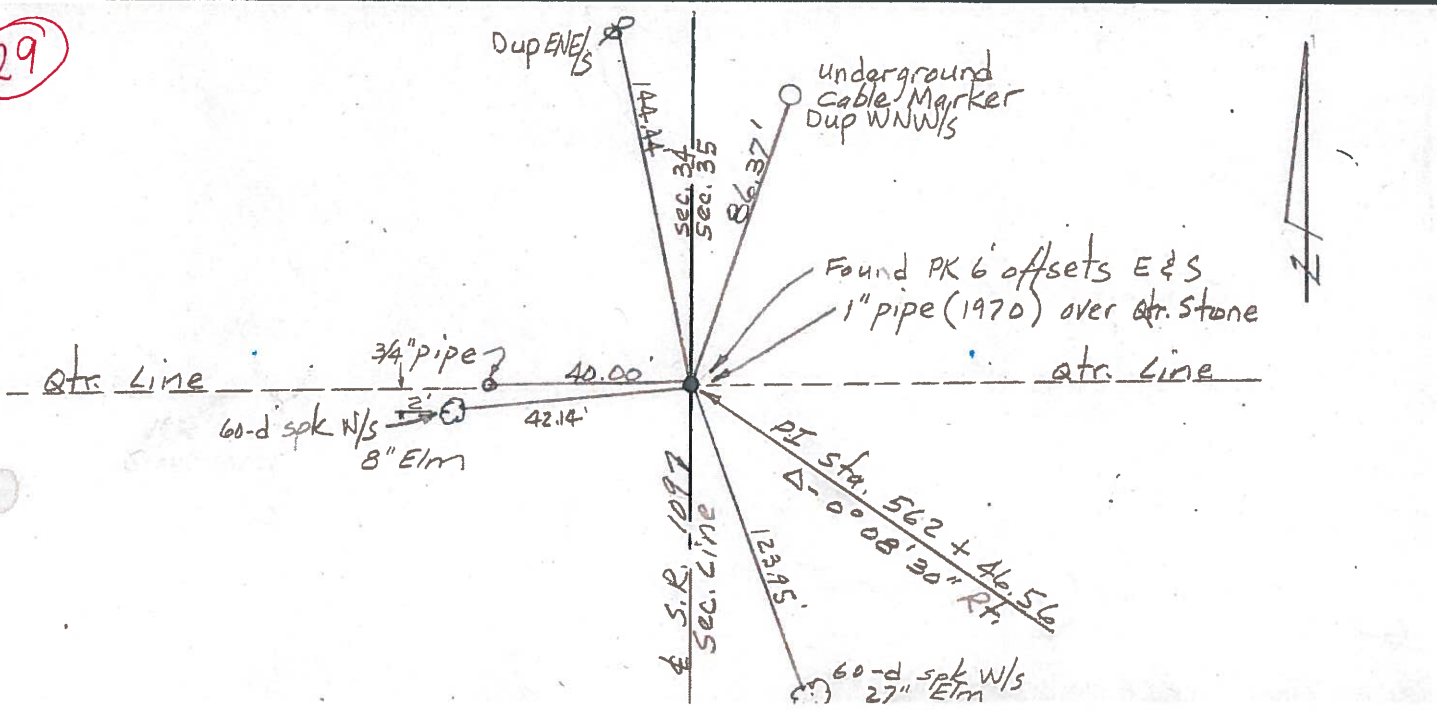 29
Dup ENE/s
144.44
underground
Cable Marker
Dup WNW/s
86.37'
Sec. 34
Sec. 35
Found PK 6' offsets E & S
1" pipe (1970) over Qtr. Stone
3/4" pipe
40.00'
Qtr. Line
Qtr. Line
2'
60-d spk N/s
8" Elm
42.14'
PI Sta. 562 + 46.56
Δ- 0° 08' 30" Rt.
℄ S.R. 109
Sec. Line
123.95'
60-d spk W/s
27" Elm